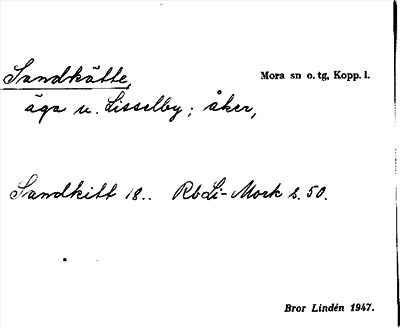 Sandkätte, Mora sn o. tg, Kopp. l.
äga u. Lisselby; åker,
Sandkitt 18.. RbLi-Mork s. 50.
Bror Lindén 1947.